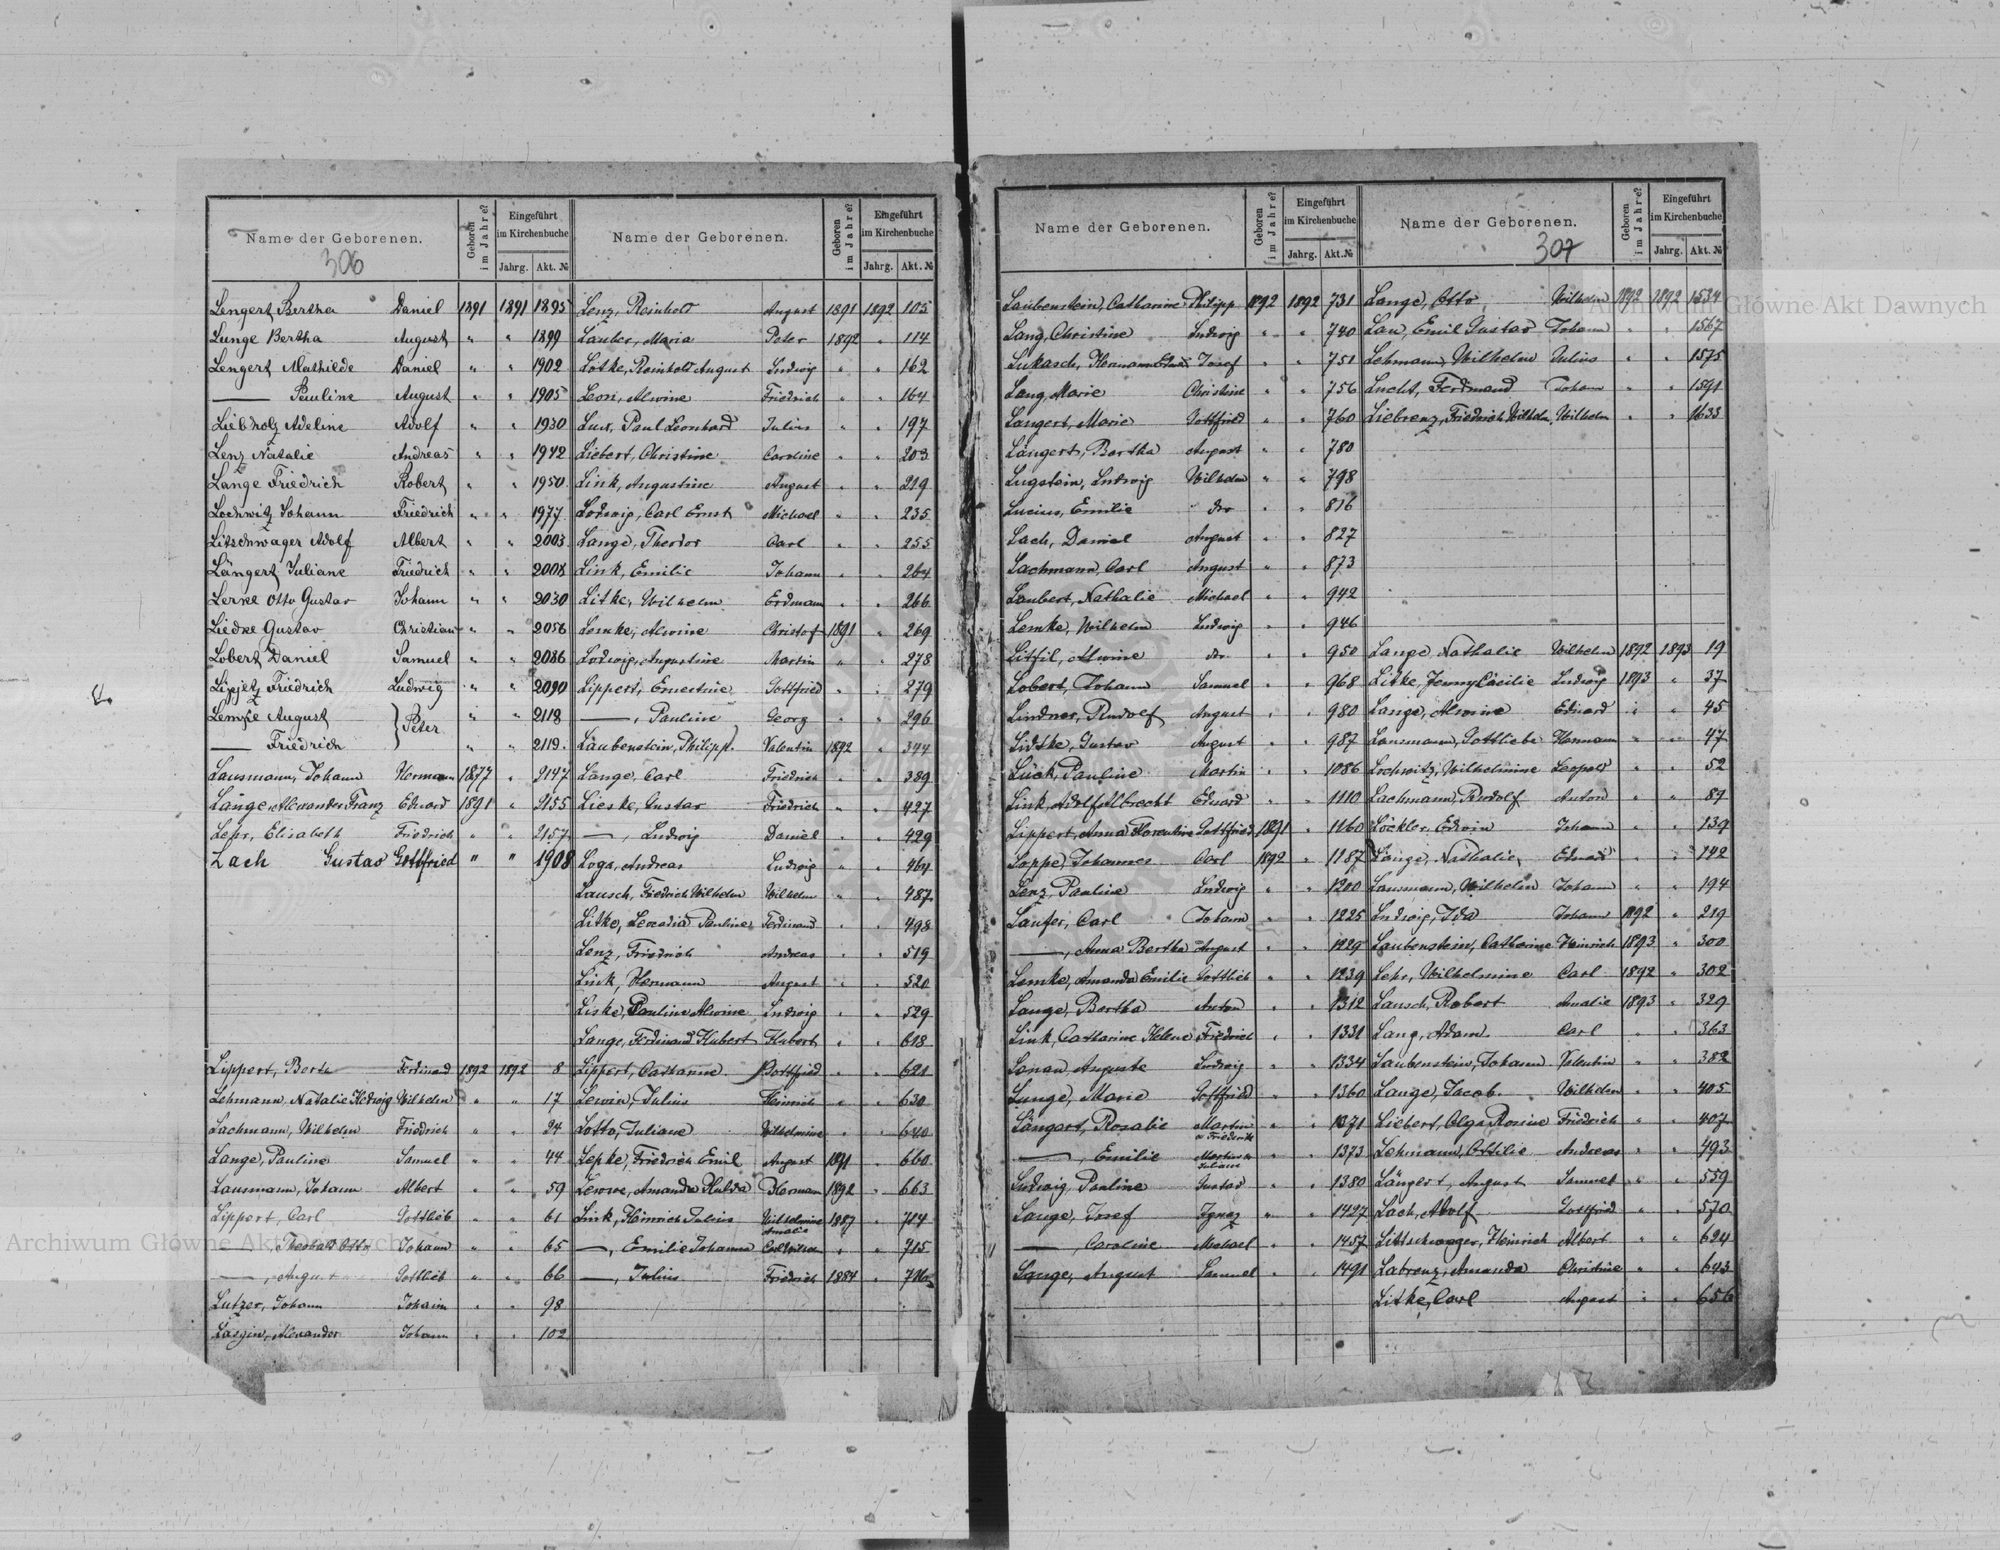 Name der Geborenen.
306
Geboren im Jahre?
Eingeführt im Kirchenbuche
Jahrg. Akt. №
Lengert Bertha Daniel 1891 1891 1895
Lange Bertha August " " 1899
Lengert Mathilde Daniel " " 1902
— Pauline August " " 1905
Liebholz Adeline Adolf " " 1930
Lenz Natalie Andreas " " 1942
Lange Friedrich Robert " " 1950
Lochwitz Johann Friedrich " " 1977
Litschwager Adolf Albert " " 2003
Längert Juliane Friedrich " " 2008
Lerke Otto Gustav Johann " " 2030
Liedke Gustav Christian " " 2056
Lobert Daniel Samuel " " 2086
Lipjetz Friedrich Ludwig " " 2090
Lemke August } Peter " " 2118
— Friedrich " " 2119
Lausmann, Johann Herman 1877 " 2147
Lange, Alexander Franz Eduard 1891 " 2155
Lehr, Elisabeth Friedrich " " 2157
Lach Gustav Gottfried " " 1908
Lippert, Berta Ferdinad 1892 1892 8
Lehmann, Natalie Hedwig Wilhelm " " 17
Lachmann, Wilhelm Friedrich " " 24
Lange, Pauline Samuel " " 44
Lausmann, Johann Albert " " 59
Lippert, Carl Gottlieb " " 61
—, Theobald Otto Johann " " 65
—, August Gottlieb " " 66
Lutzer, Johann Johann " " 98
Alexander Johann " " 102
Name der Geborenen.
Geboren im Jahre?
Eingeführt im Kirchenbuche
Jahrg. Akt. №
Lenz, Reinhold August 1891 1892 105
Lauber, Maria Peter 1892 " 114
Litke, Reinhold August Ludwig " " 162
Leon, Alwine Friedrich " " 164
Lux, Paul Leonhard Julius " " 197
Liebert, Christine Caroline " " 203
Link, Augustine August " " 219
Ludwig, Carl Ernst Michael " " 235
Lange, Theodor Carl " " 255
Link, Emilie Johann " " 264
Litke, Wilhelm Erdmann " " 266
Lemke, Alwine Christof 1891 " 269
Ludwig, Augustine Martin " " 278
Lippert, Ernestine Gottfried " " 279
—, Pauline Georg " " 296
Laubenstein, Philipp. Valentin 1892 " 344
Lange, Carl Friedrich " " 389
Lieske, Gustav Friedrich " " 427
—, Ludwig Daniel " " 429
Loga, Andreas Ludwig " " 464
Lausch, Friedrich Wilhelm Wilhelm " " 487
Litke, Leocadia Pauline Ferdinand " " 498
Lenz, Friedrich Andreas " " 519
Link, Hermann August " " 520
Liske, Pauline Alwine Ludwig " " 529
Lange, Ferdinand Hubert Hubert " " 618
Lippert, Catharine Gottfried " " 621
Lewin, Julius Heinrich " " 630
Lotto, Juliane Wilhelmine " " 640
Lepke, Friedrich Emil August 1891 " 660
Amanda Hulda Herman 1892 " 663
Link, Heinrich Julius Wilhelmine Amalie 1887 " 714
—, Emilie Johanna " " 715
—, Julius Friedrich 1884 " 716
Name der Geborenen.
Geboren im Jahre?
Eingeführt im Kirchenbuche
Jahrg. Akt. №
Laubenstein, Catharine Philipp 1892 1892 731
Lang, Christine Ludwig " " 740
Lukasch, Hermann Josef " " 751
Lang, Marie Christine " " 756
Langert, Marie Gottfried " " 760
Längert, Bertha August " " 780
Lugstein, Ludwig Wilhelm " " 798
Lucius, Emilie dto " " 816
Lach, Daniel August " " 827
Lachmann, Carl August " " 873
Laubert, Nathalie Michael " " 942
Lemke, Wilhelm Ludwig " " 946
Litfil, Alwine dto " " 950
Lobert, Johann Samuel " " 968
Lindner, Rudolf August " " 980
Lidtke, Gustav August " " 987
Lück, Pauline Martin " " 1086
Link, Adolf Albrecht Eduard " " 1110
Lippert, Anna Florentine Gottfried 1891 " 1160
Loppe, Johannes Carl 1892 " 1187
Lenz, Pauline Ludwig " " 1200
Laufer, Carl Johann " " 1225
—, Anna Bertha August " " 1229
Lemke, Amanda Emilie Gottlieb " " 1239
Lange, Bertha Anton " " 1312
Link, Catharine Helene Friedrich " " 1331
Auguste Ludwig " " 1334
Lange, Marie Gottfried " " 1360
Längert, Rosalie Martin u Friederike " " 1371
—, Emilie Martin u Juliane " " 1373
Ludwig, Pauline Gustav " " 1380
Lange, Josef Ignaz " " 1427
—, Caroline Michael " " 1457
Lange, August Samuel " " 1491
Name der Geborenen.
307
Geboren im Jahre?
Eingeführt im Kirchenbuche
Jahrg. Akt. №
Lange, Otto Wilhelm 1892 1892 1534
Lau, Emil Gustav Johann " " 1567
Lehmann, Wilhelm Julius " " 1575
Lucht, Ferdinand Johann " " 1591
Liebrenz, Friedrich Wilhelm, Wilhelm " " 1633
Lange, Nathalie Wilhelm 1892 1893 19
Litke, Jenny Cäcilie Ludwig 1893 " 37
Lange, Alwine Eduard " " 45
Lausmann, Gottliebe Hermann " " 47
Lochwitz, Wilhelmine Leopold " " 52
Lachmann, Rudolf Anton " " 87
Löckler, Edwin Johann " " 139
Lange, Nathalie, Eduard " " 142
Lausmann, Wilhelm Johann " " 194
Ludwig, Ida Johann 1892 " 219
Laubenstein, Catharine Heinrich 1893 " 300
Lehr, Wilhelmine Carl 1892 " 302
Lausch, Robert Amalie 1893 " 329
Lang, Adam Carl " " 363
Laubenstein, Johann Valentin " " 382
Lange, Jacob Wilhelm " " 405
Liebert, Olga Rosine Friedrich " " 407
Lehmann, Ottilie Andreas " " 493
Längert, August Samuel " " 559
Lach, Adolf Gottfried " " 570
Littschwager, Heinrich Albert " " 624
Labrenz, Amanda Christine " " 643
Litke, Carl August " " 656
Archiwum Główne Akt Dawnych
Archiwum Główne Akt Dawnych